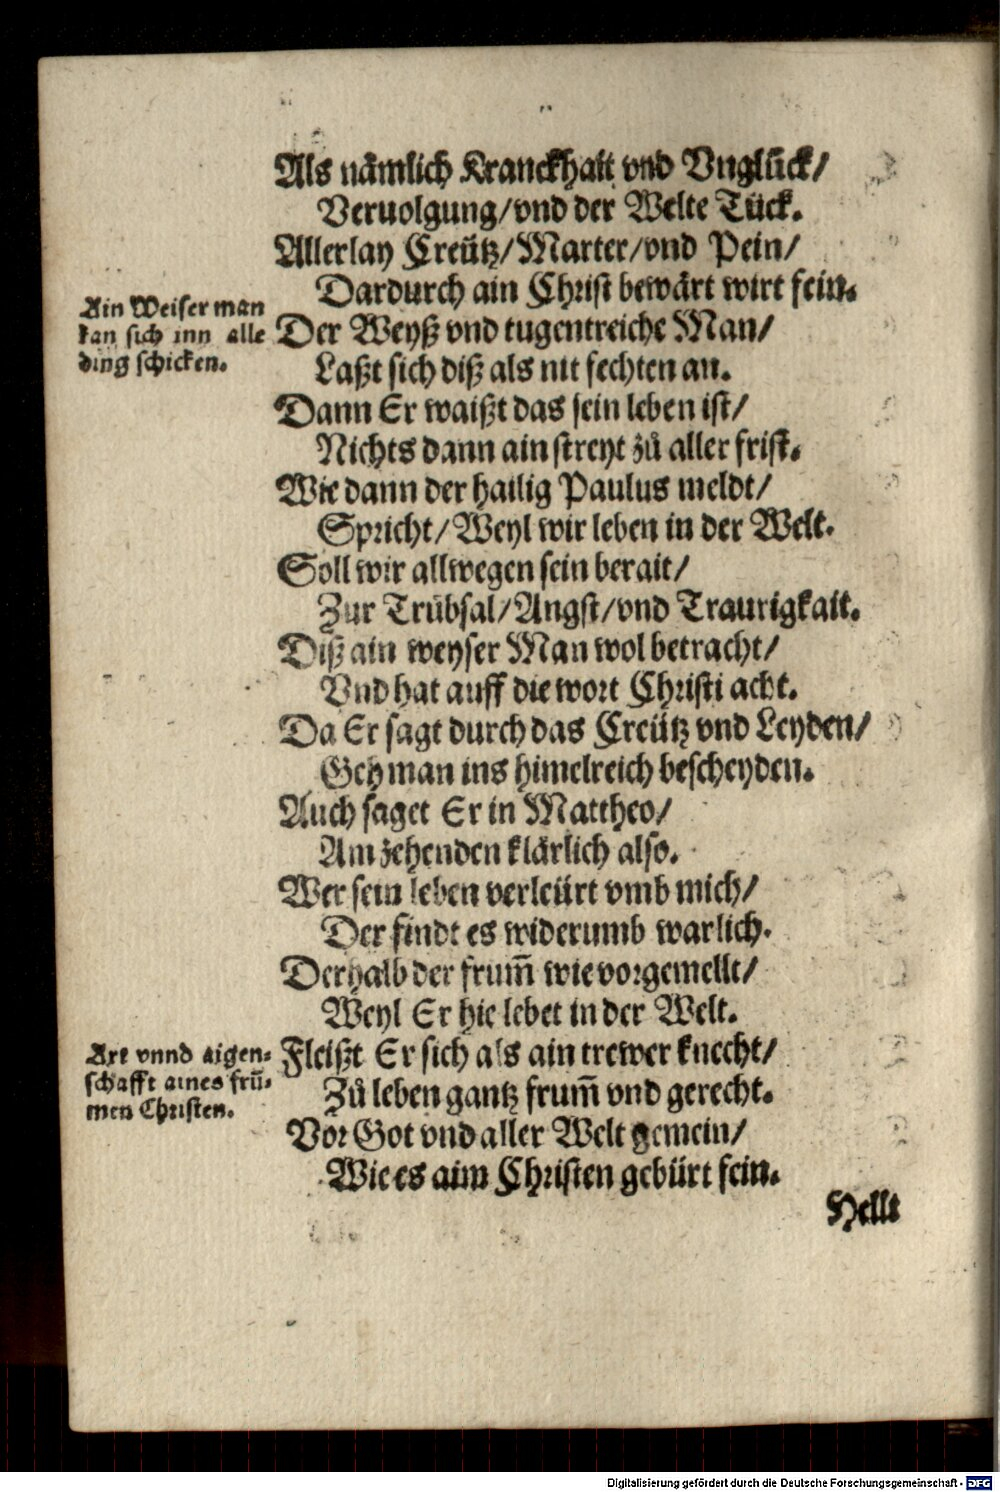 Als nämlich Kranckhait vnd Vnglück/
Veruolgung/vnd der Welte Tück.
Allerlay Creütz/Marter/vnd Pein/
Dardurch ain Christ bewärt wirt fein.
Ain Weiser man
kan sich inn alle
ding schicken.
Der Weyß vnd tugentreiche Man/
Laßt sich diß als nit fechten an.
Dann Er waißt das sein leben ist/
Nichts dann ain streyt zů aller frist.
Wie dann der hailig Paulus meldt/
Spricht/Weyl wir leben in der Welt.
Soll wir allwegen sein berait/
Zur Trübsal/Angst/vnd Traurigkait.
Diß ain weyser Man wol betracht/
Vnd hat auff die wort Christi acht.
Da Er sagt durch das Creütz vnd Leyden/
Geh man ins himelreich bescheyden.
Auch saget Er in Mattheo/
Am zehenden klärlich also.
Wer sein leben verleürt vmb mich/
Der findt es widerumb warlich.
Derhalb der frum̃ wie vorgemellt/
Weyl Er hie lebet in der Welt.
Art vnnd aigen-
schafft aines frũ-
men Christen.
Fleißt Er sich als ain trewer knecht/
Zů leben gantz frum̃ vnd gerecht.
Vor Got vnd aller Welt gemein/
Wie es aim Christen gebürt fein.
Hellt
Digitalisierung gefördert durch die Deutsche Forschungsgemeinschaft - DFG